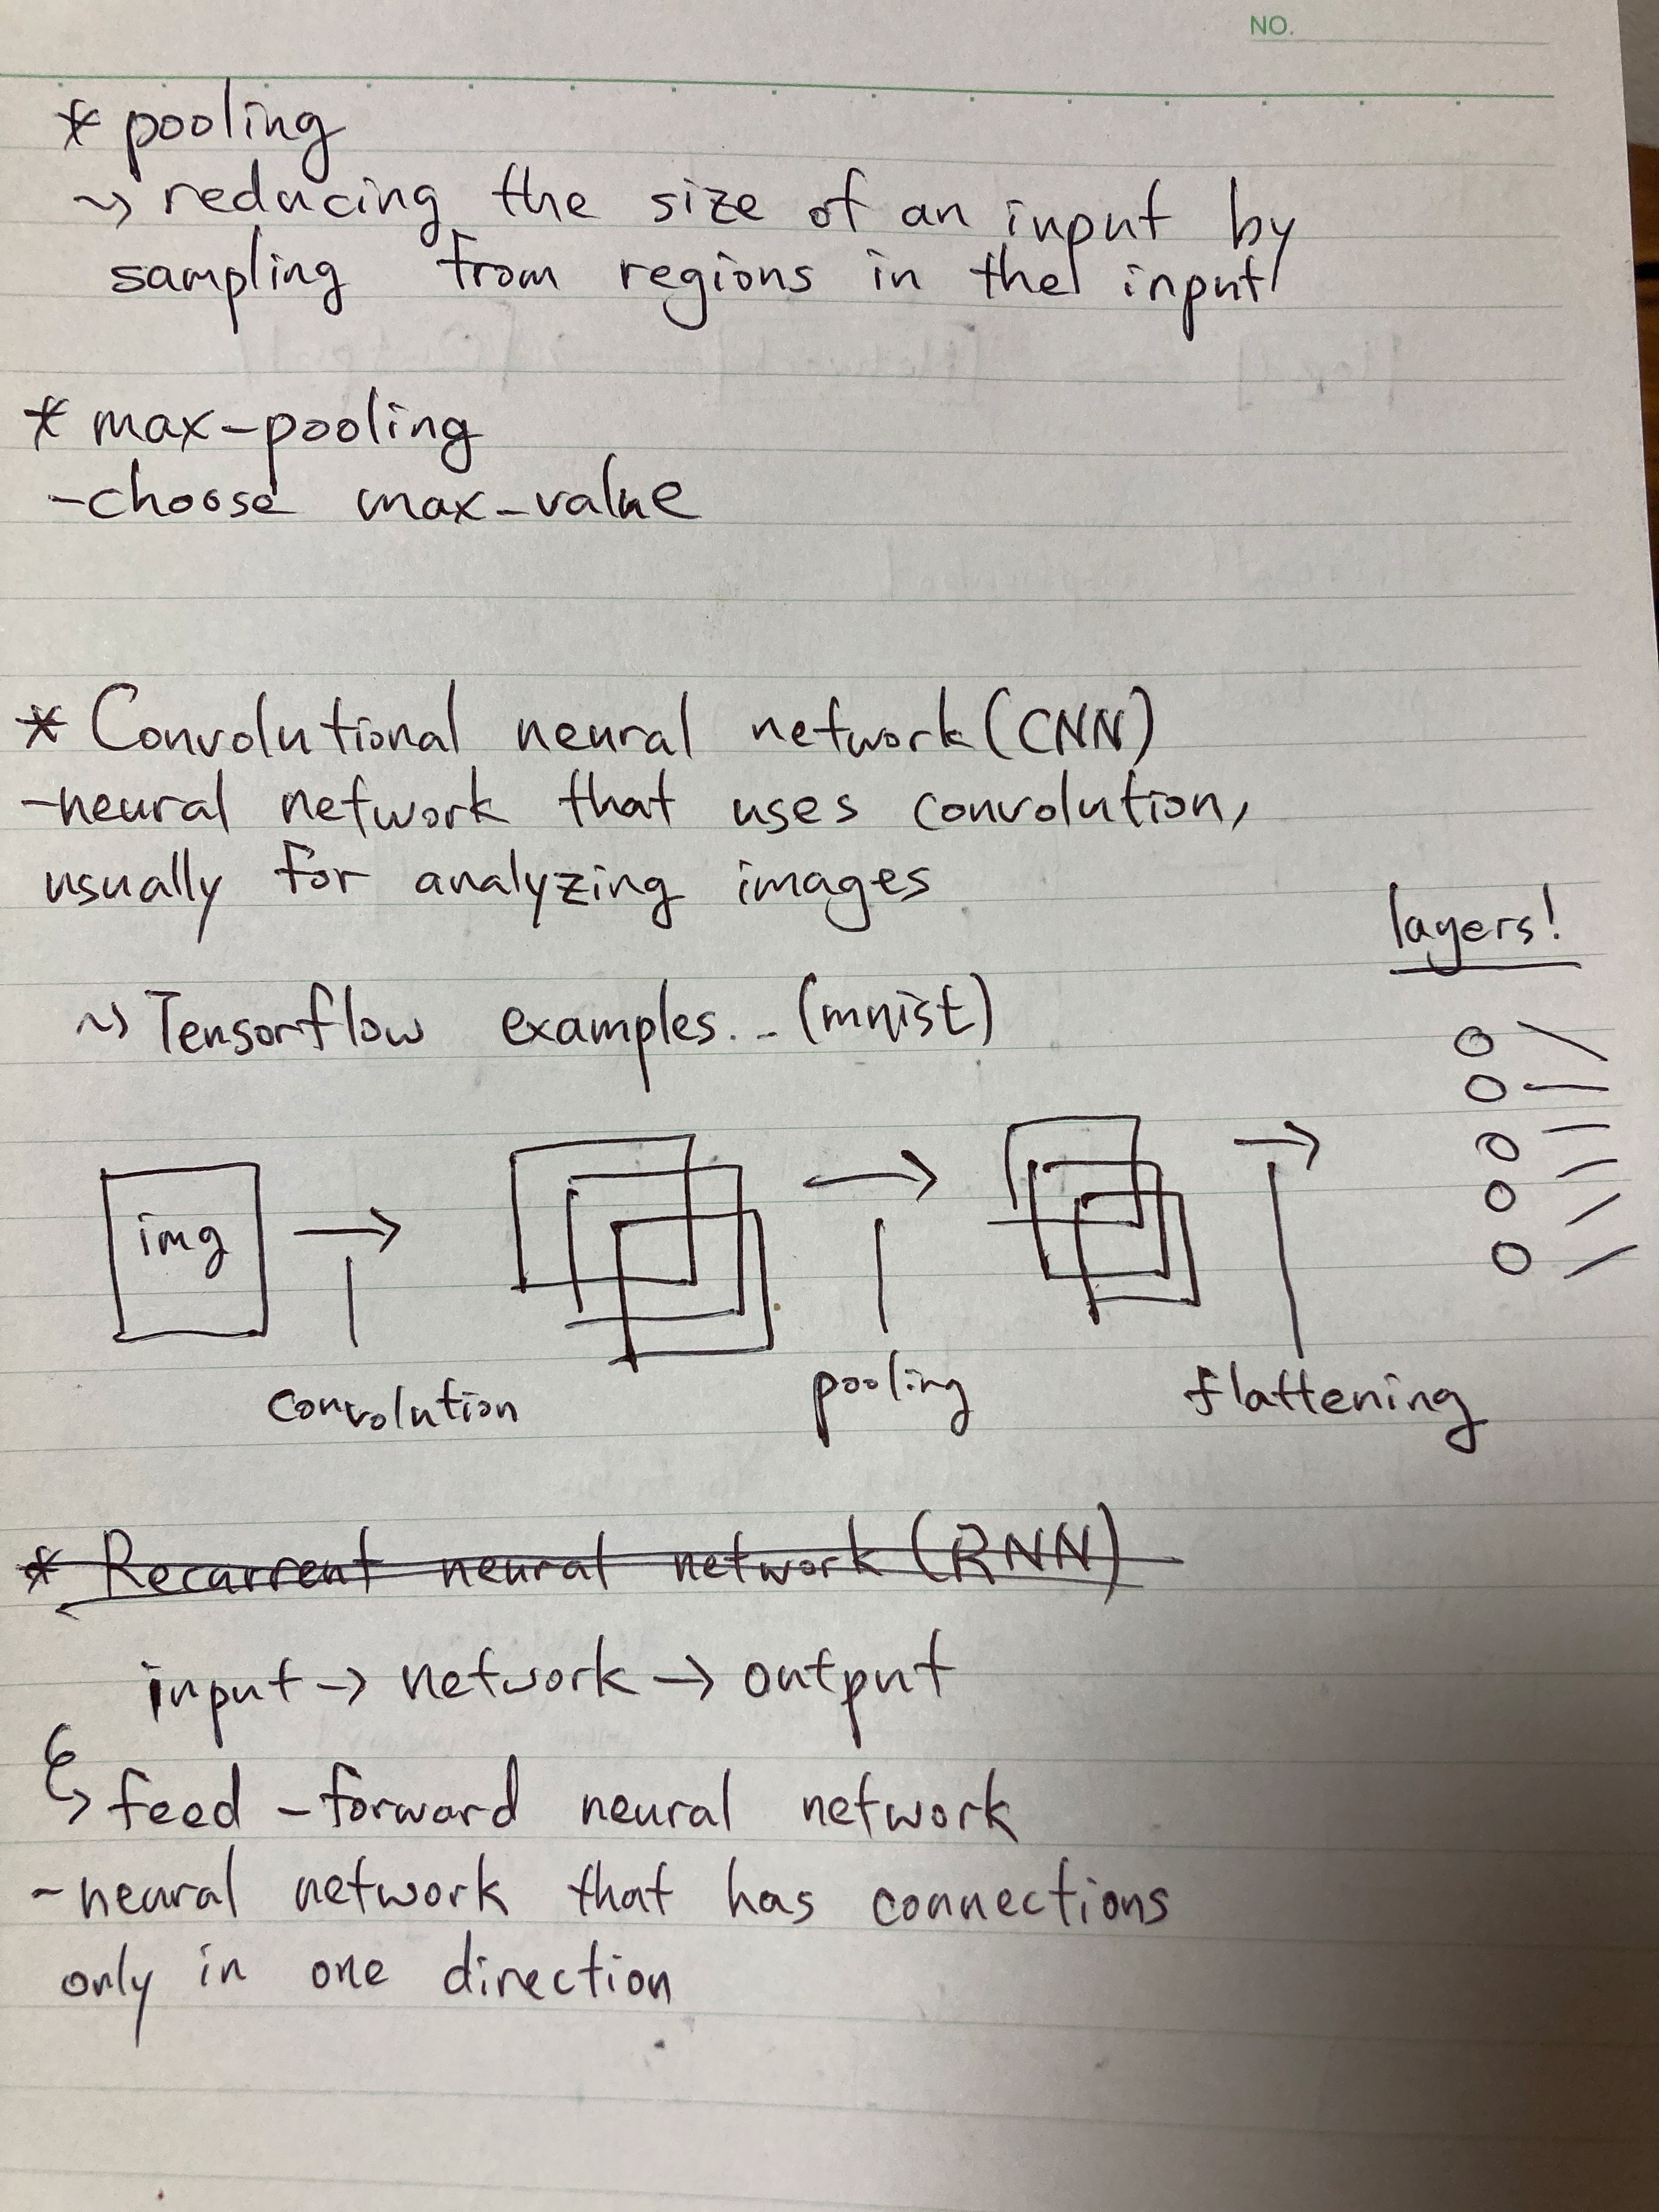 NO.
* pooling
~> reducing the size of an input by
sampling from regions in the input
* max-pooling
-choose max-value
* Convolutional neural network (CNN)
-neural network that uses convolution,
usually for analyzing images
layers!
~> Tensorflow examples... (mnist)
img
convolution
pooling
flattening
* Recurrent neural network (RNN)
input → network → output
↳ feed-forward neural network
-neural network that has connections
only in one direction